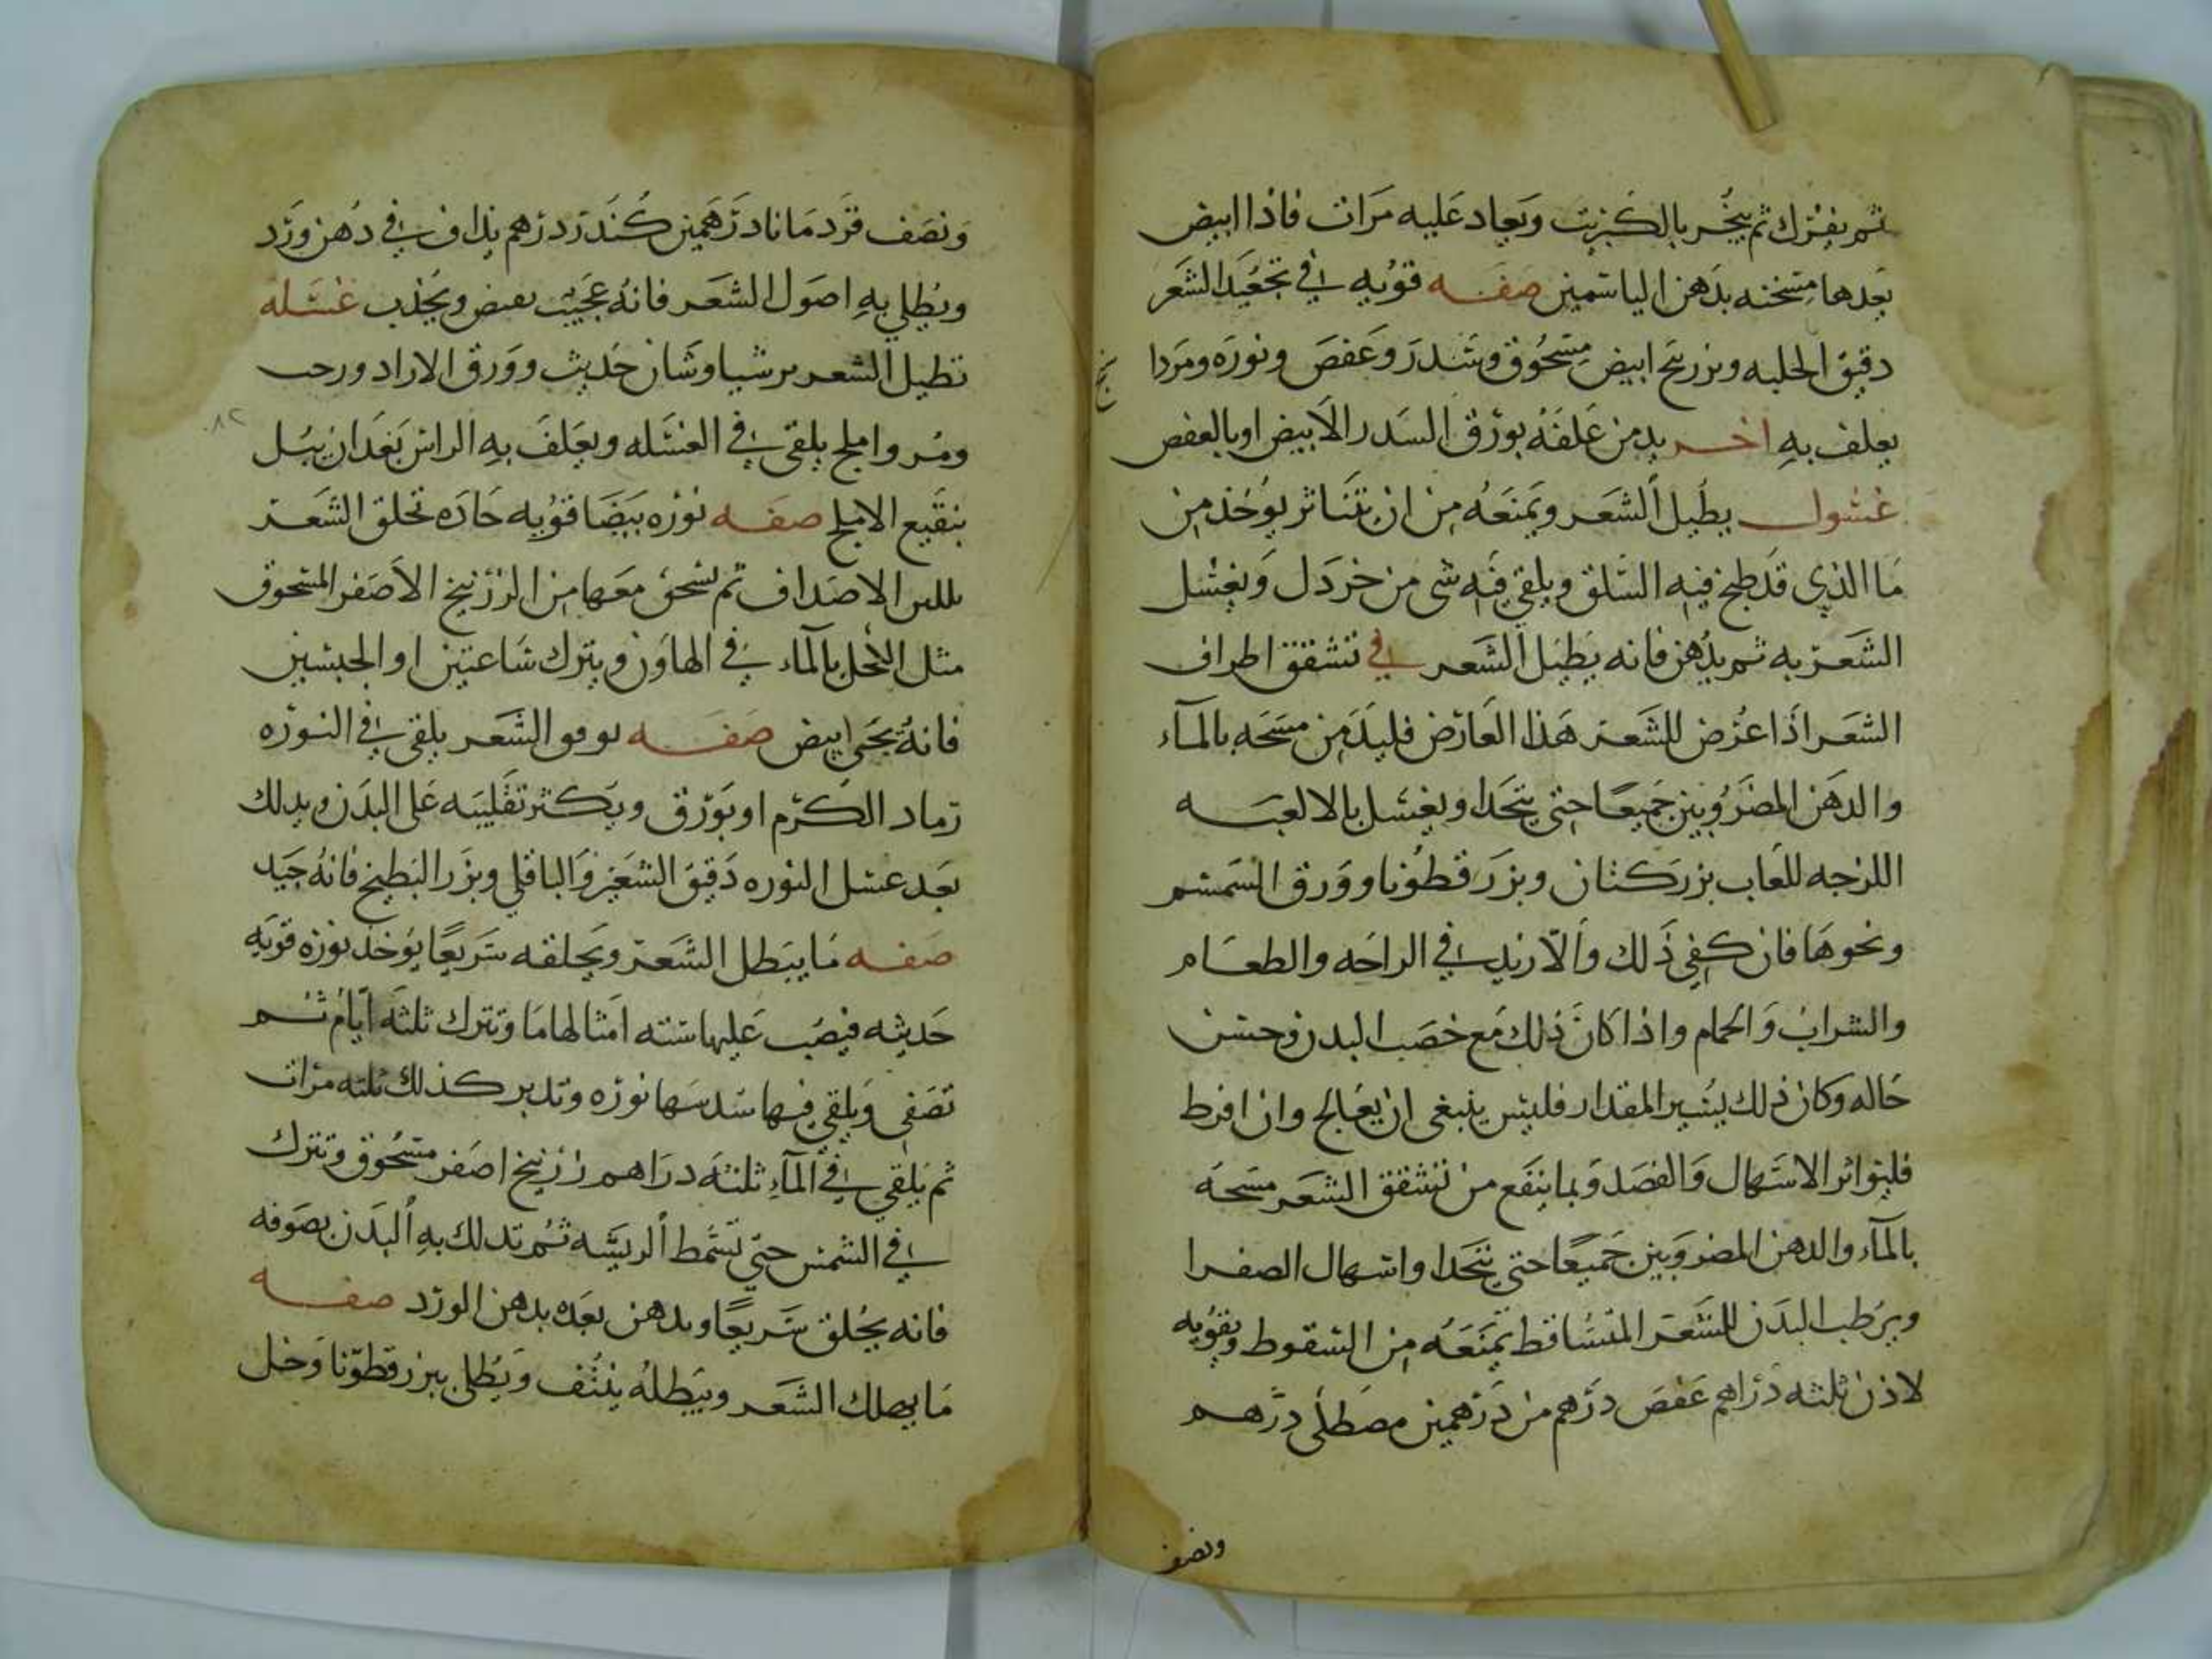 ثم يفترك ثم يبخر بالكبريت ويعاد عليه مرات فاذا ابيض
بعدها مسخنه بدهن الياسمين صفه قويه في تجعيد الشعر
دقيق الحلبه وبزر بنج ابيض مسحوق وسدر وعفص ونوره ومردا
سنج
يعلف به اخر يدمن علفه بورق السدر الابيض او بالعفص
غسول يطيل الشعر ويمنعه من ان يتناثر يوخذ من
ما الذي قد طبخ فيه السلق ويلقي فيه شي من خردل ويغسل
الشعر به ثم يدهن فانه يطيل الشعر في تشقق اطراف
الشعر اذا عرض للشعر هذا العارض فليدمن مسحه بالماء
والدهن المضروبين جميعا حتي يتحدا ويغسل بالالعبه
اللزجه للعاب بزر كتان وبزر قطونا وورق السمسم
ونحوها فان كفي ذلك والا زيد في الراحه والطعام
والشراب والحمام واذا كان ذلك مع خصب البدن وحسن
حاله وكان ذلك يسير المقدار فليس ينبغي ان يعالج وان افرط
فليواتر الاسهال والفصد وبما ينفع من تشقق الشعر مسحه
بالماء والدهن المضروبين جميعا حتي يتحدا واسهال الصفرا
ويرطب البدن للشعر المتساقط يمنعه من السقوط ويقويه
لاذن ثلثه دراهم عفص درهم مر درهمين مصطلي درهم
ونصف
ونصف قردمانا درهمين كندر درهم يذاف في دهن ورد
ويطلي به اصول الشعر فانه عجيب يقبض ويجذب غسله
تطيل الشعر برشياوشان حديث وورق الازاد ورحب
ومر واملج يلقي في الغسله ويعلف به الراس بعد ان يبل
بنقيع الاملج صفه نوره بيضا قويه حاده تحلق الشعر
الاصداف ثم تسحق معها من الزرنيخ الاصفر المسحوق
مثل الكحل بالماء في الهاون ويترك ساعتين او
فانه يجي ابيض صفه الشعر يلقي في النوره
رماد الكرم او بورق ويكثر تقليبه علي البدن ويدلك
بعد غسل النوره دقيق الشعير والباقلي وبزر البطيخ فانه جيد
صفه ما يبطل الشعر ويحلقه سريعا يوخذ نوره قويه
حديثه فيصب عليها سته امثالها ما وتترك ثلثه ايام ثم
تصفي ويلقي فيها سدسها نوره وتدبر كذلك ثلثه مرات
ثم يلقي في الماء ثلثه دراهم زرنيخ اصفر مسحوق وتترك
في الشمس حتي تسمط الريشه ثم تدلك به البدن بصوفه
فانه يحلق سريعا ويدهن بعده بدهن الورد صفه
ما يهلك الشعر ويبطله ينتف ويطلي ببزر قطونا وخل